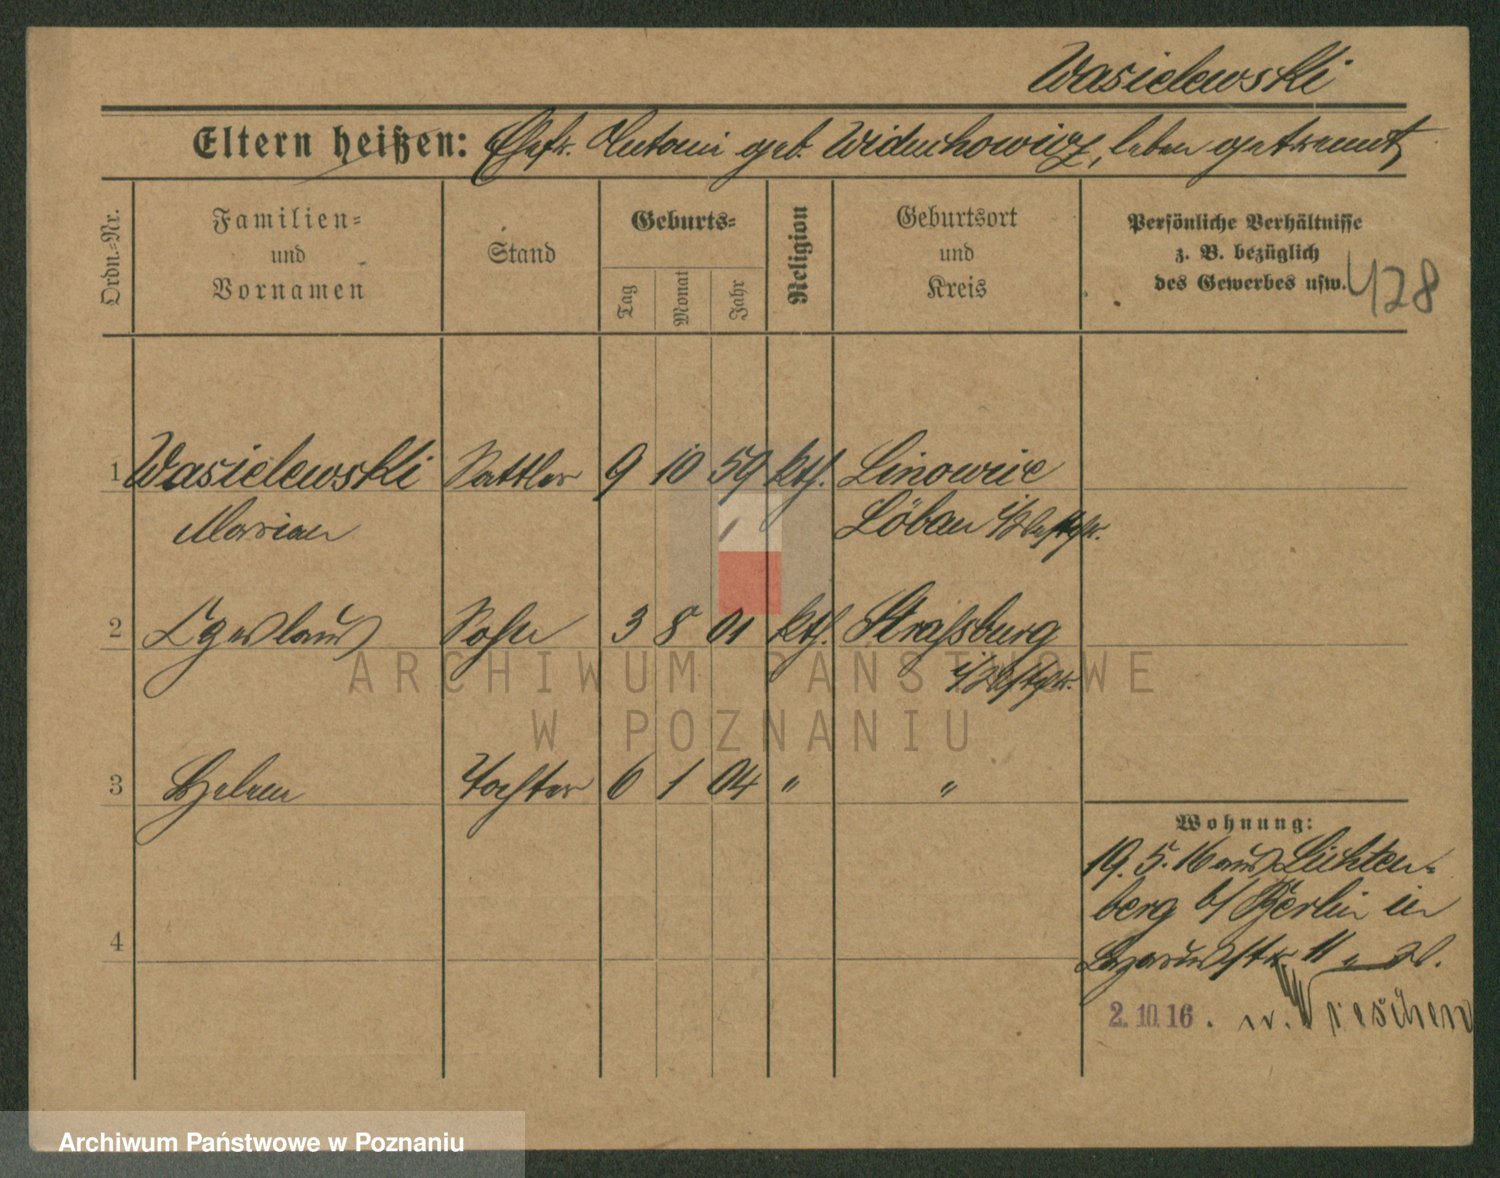 Wasielewski
Eltern heißen: Ehefr. Antoni geb. Widuchowicz, leben getrennt
Ordn.-Nr.
Familien-
und
Vornamen
Stand
Geburts-
Tag
Monat
Jahr
Religion
Geburtsort
und
Kreis
Persönliche Verhältnisse
z. B. bezüglich
des Gewerbes usw.
428
1 Wasielewski Sattler 9 10 59 kth. Linowiec
Marian Löbau i/Westpr.
2 Czeslaus Sohn 3 8 01 kth. Straßburg
i/Westpr.
3 Helene Tochter 6 1 04 " "
4
Wohnung:
19. 5. 16 aus Lichten-
berg b/ Berlin in
11
2. 10. 16. n. Wreschen
ARCHIWUM PAŃSTWOWE
W POZNANIU
Archiwum Państwowe w Poznaniu